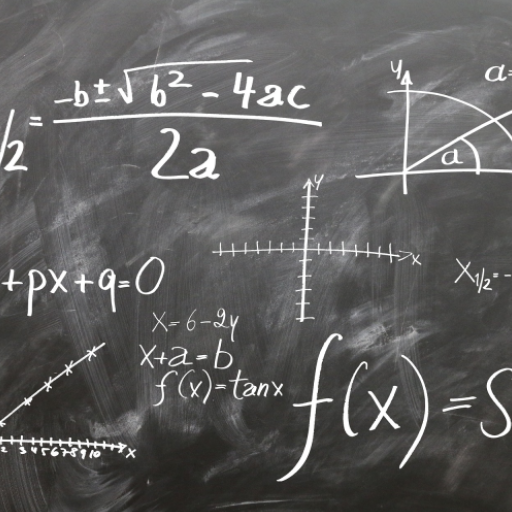 /2 = -b±√b² - 4ac
2a
y
a=
a
y
x
+px+q=0
X1/2=-
X=6-2y
x+a=b
f(x)=tanx
f(x)=S
2 3 4 5 6 7 8 9 10 x